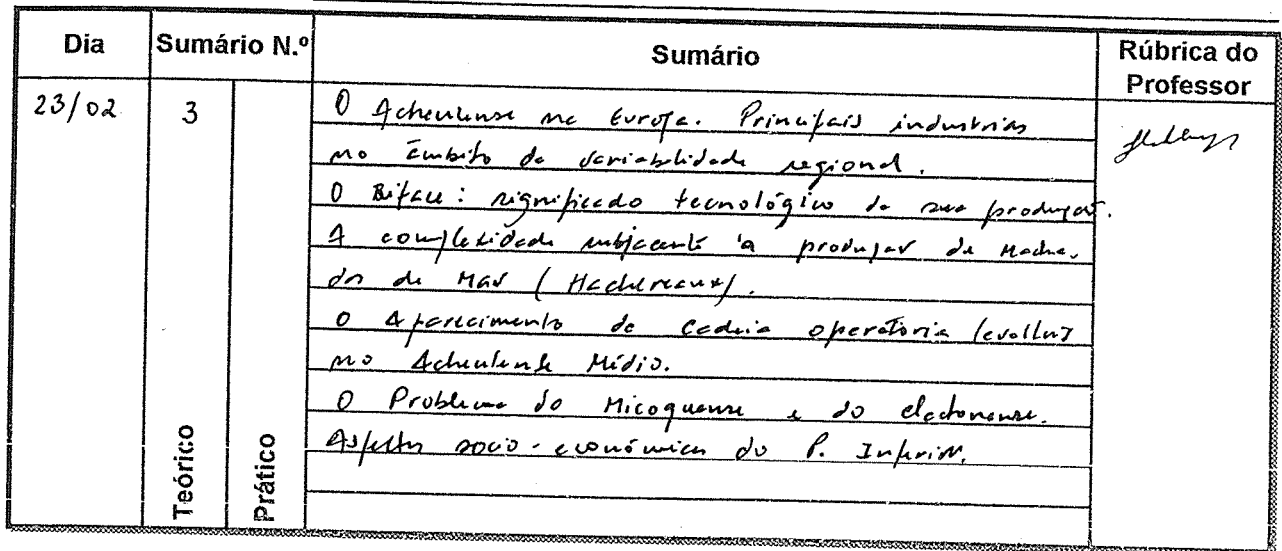 Dia Sumário N.º Sumário Rúbrica do Professor
23/02 3
O Acheulense na Europa. Principais industrias
no âmbito da variabilidade regional.
O Biface: significado tecnológico da sua produção.
A complexidade subjacente à produção de Macha-
dos de Mão (Hachereaux).
O Aparecimento da Cadeia operatória
no Acheulense Médio.
O Problema do Micoquense e do clactonense.
Aspectos socio-económicos do P. Inferior.
Teórico
Prático